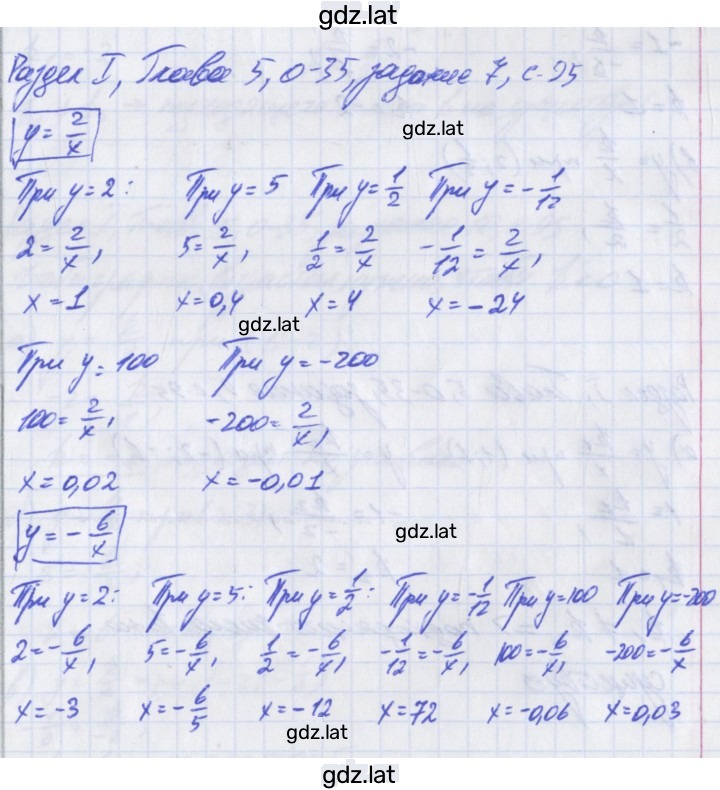 gdz.lat
Раздел I, Глава 5, О-35, задание 7, с. 95
y = 2/x
gdz.lat
При y = 2: При y = 5 При y = 1/2 При y = -1/12
2 = 2/x, 5 = 2/x, 1/2 = 2/x -1/12 = 2/x,
x = 1 x = 0,4 x = 4 x = -24
gdz.lat
При y = 100 При y = -200
100 = 2/x, -200 = 2/x,
x = 0,02 x = -0,01
y = -6/x
gdz.lat
При y = 2: При y = 5: При y = 1/2: При y = -1/12 При y = 100 При y = -200
2 = -6/x, 5 = -6/x, 1/2 = -6/x, -1/12 = -6/x, 100 = -6/x, -200 = -6/x
x = -3 x = -6/5 x = -12 x = 72 x = -0,06 x = 0,03
gdz.lat
gdz.lat